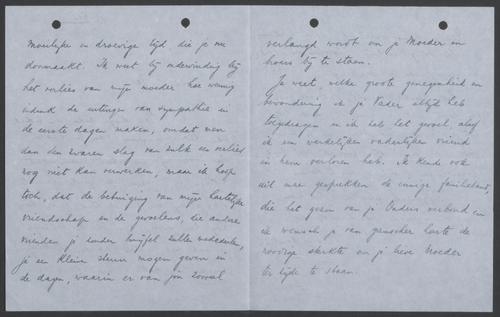 moeilijke en droevige tijd die je nu
doormaakt. Ik weet bij ondervinding bij
het verlies van mijn moeder hoe weinig
indruk de uitingen van sympathie in
de eerste dagen maken, omdat men
dan den zwaren slag van zulk een verlies
nog niet kan verwerken, maar ik hoop
toch, dat de betuiging van mijn hartelijke
vriendschap en de gevoelens, die andere
vrienden je zonder twijfel zullen mededeelen,
je een kleine steun mogen geven in
de dagen, waarin er van jou zooveel
verlangd wordt om je Moeder en
broers bij te staan.
Je weet, welke groote genegenheid en
bewondering ik je Vader altijd heb
toegedragen en ik heb het gevoel, alsof
ik een werkelijken vaderlijken vriend
in hem verloren heb. Ik kende ook
uit onze gesprekken de innige familieband,
die het gezin van je Ouders verbond en
ik wensch je van ganscher harte de
noodige sterkte om je lieve Moeder
ter zijde te staan.